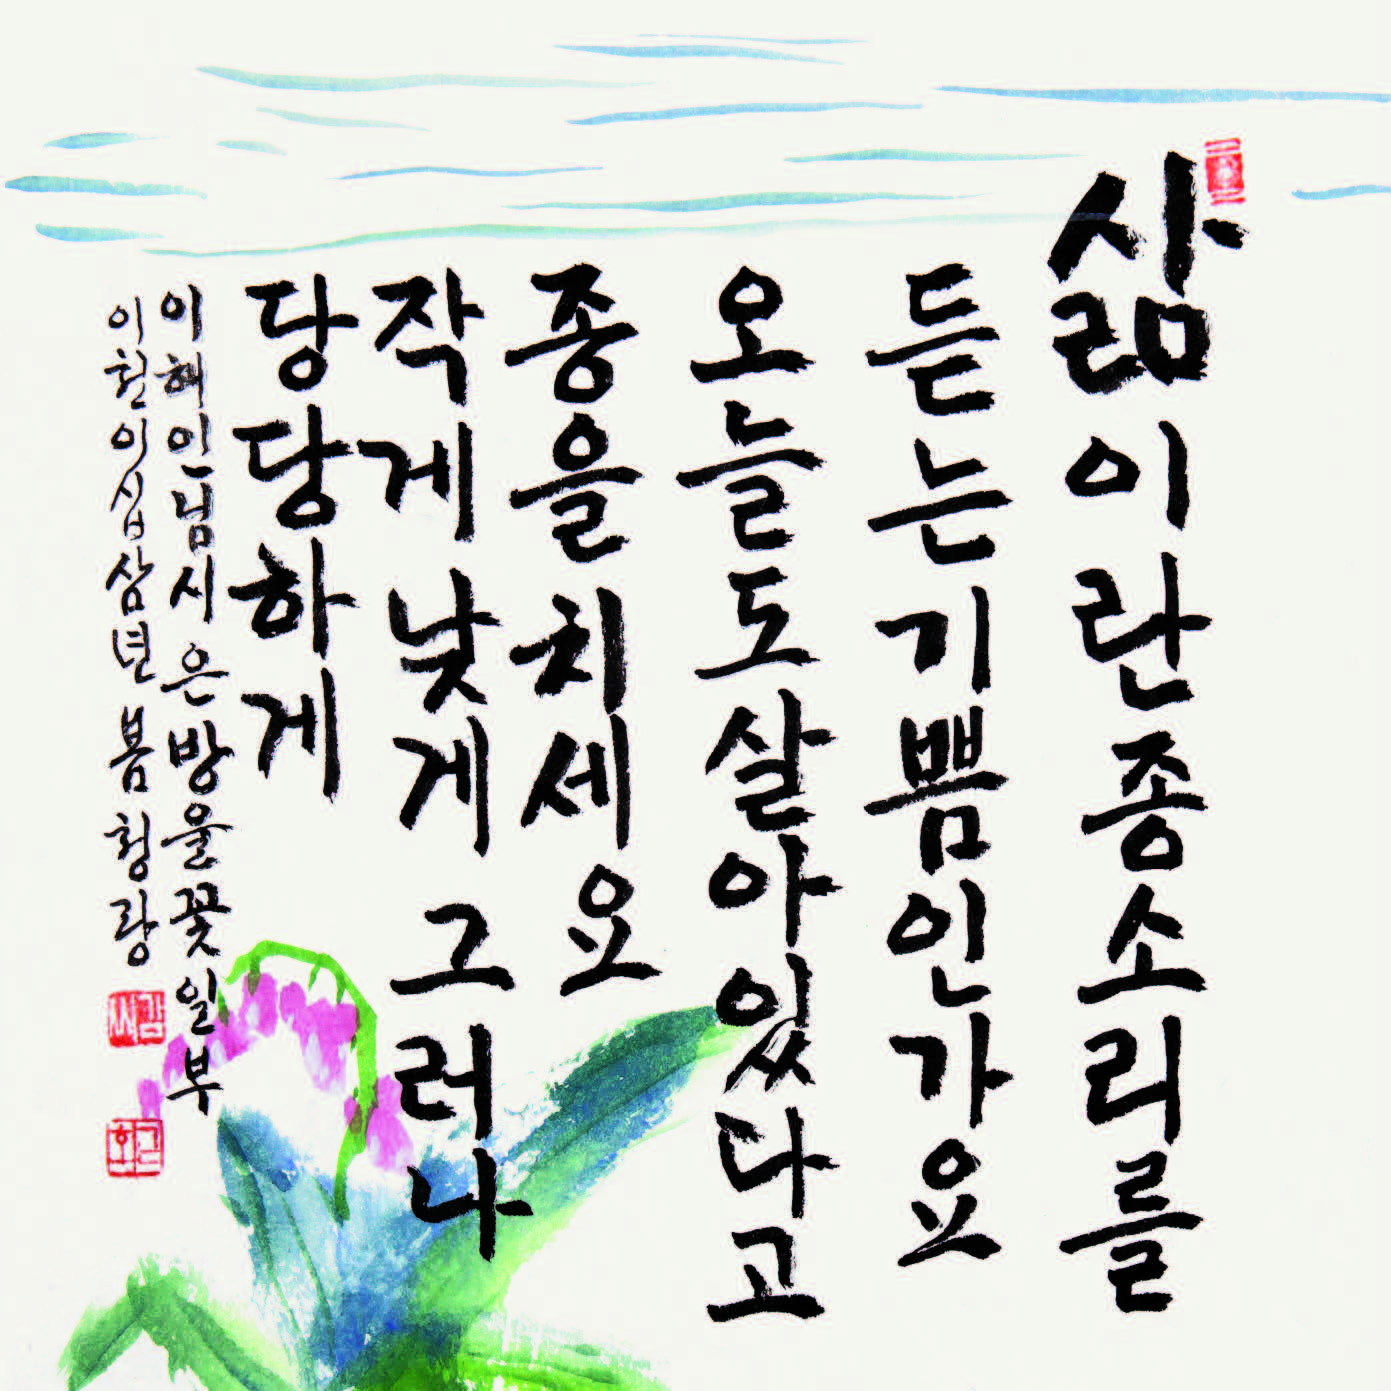 삶이란 종소리를
듣는 기쁨인가요
오늘도 살아있다고
종을 치세요
작게 낮게 그러나
당당하게
이해인님 시 은방울꽃 일부
이천이십삼년 봄 청랑